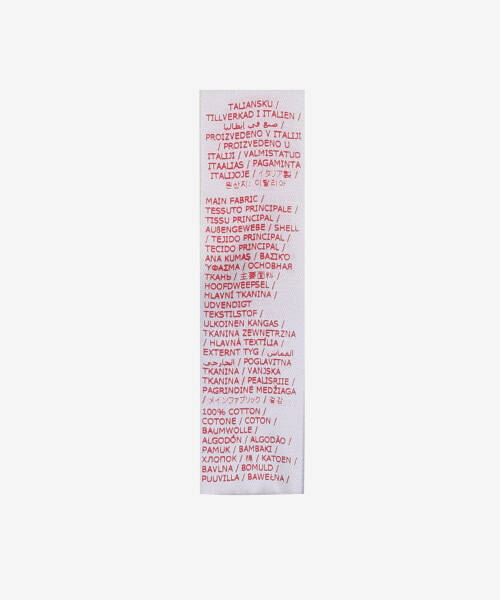 TALIANSKU /
TILLVERKAD I ITALIEN /
صنع في إيطاليا /
PROIZVEDENO V ITALIJI
/ PROIZVEDENO U
ITALIJI / VALMISTATUD
ITAALIAS / PAGAMINTA
ITALIJOJE / イタリア製 /
원산지: 이탈리아
MAIN FABRIC /
TESSUTO PRINCIPALE /
TISSU PRINCIPAL /
AUßENGEWEBE / SHELL
/ TEJIDO PRINCIPAL /
TECIDO PRINCIPAL /
ANA KUMAŞ / ΒΑΣΙΚΌ
ΎΦΑΣΜΑ / ОСНОВНАЯ
ТКАНЬ / 主要面料 /
HOOFDWEEFSEL /
HLAVNÍ TKANINA /
UDVENDIGT
TEKSTILSTOF /
ULKOINEN KANGAS /
TKANINA ZEWNĘTRZNA
/ HLAVNÁ TEXTÍLIA /
EXTERNT TYG / القماش
الخارجي / POGLAVITNA
TKANINA / VANJSKA
TKANINA / PEALISRIIE /
PAGRINDINĖ MEDŽIAGA
/ メインファブリック / 겉감
100% COTTON /
COTONE / COTON /
BAUMWOLLE /
ALGODÓN / ALGODÃO /
PAMUK / ΒΑΜΒΑΚΙ /
ХЛОПОК / 棉 / KATOEN /
BAVLNA / BOMULD /
PUUVILLA / BAWEŁNA /